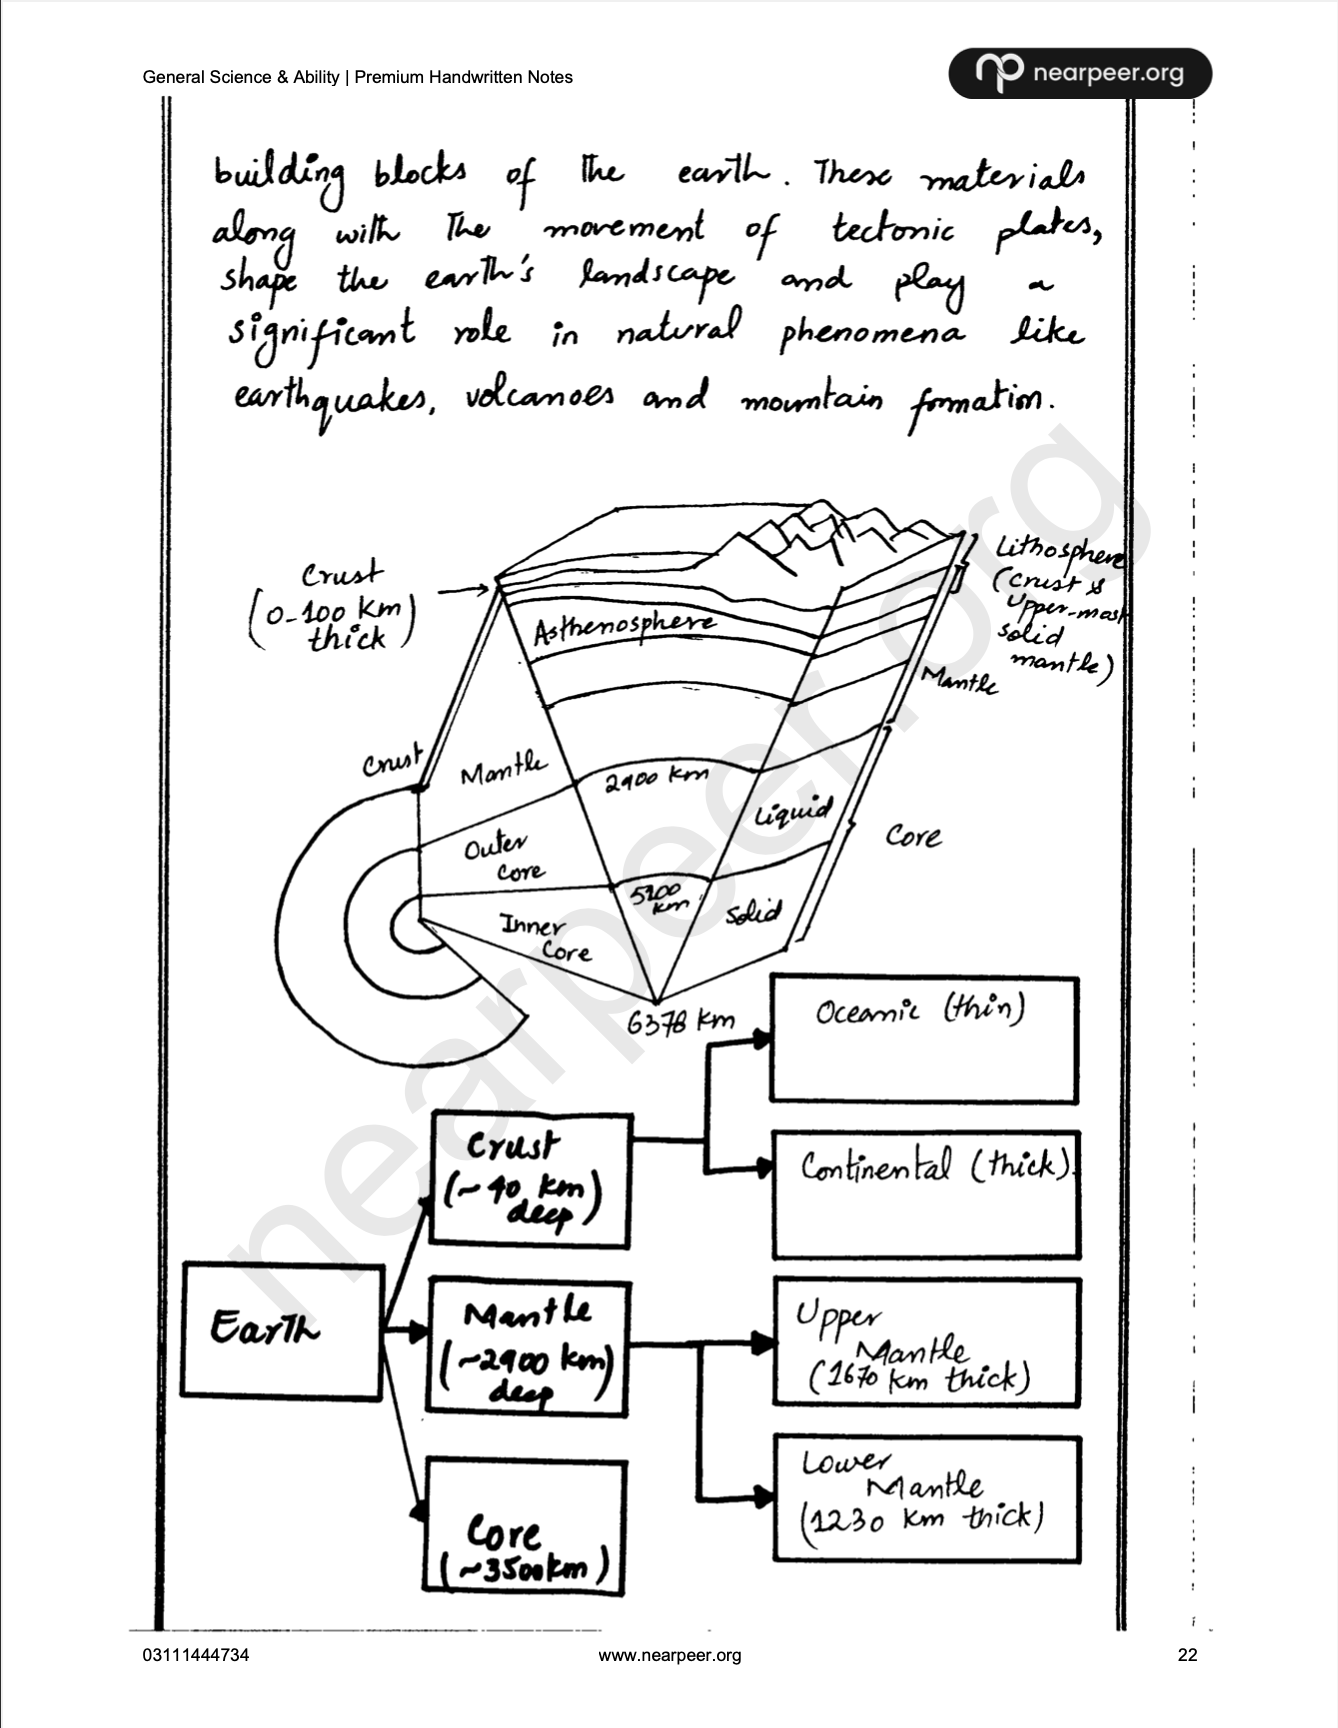 General Science & Ability | Premium Handwritten Notes
nearpeer.org
building blocks of the earth. These materials
along with the movement of tectonic plates,
shape the earth's landscape and play a
significant role in natural phenomena like
earthquakes, volcanoes and mountain formation.
Crust
(0-100 km)
thick
Lithosphere
(crust &
Upper-most
solid
mantle)
Asthenosphere
Mantle
Crust
Mantle
2900 km
Liquid
Core
Outer
Core
5100
km
Solid
Inner
Core
6378 km
Oceanic (thin)
Crust
(~40 km)
deep
Continental (thick).
Earth
Mantle
(~2900 km)
deep
Upper
Mantle
(1670 km thick)
Core
(~3500km)
Lower
Mantle
(1230 km thick)
nearpeer.org
03111444734
www.nearpeer.org
22